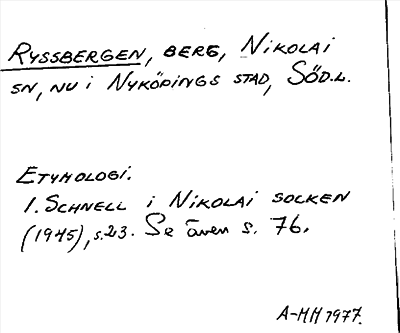 RYSSBERGEN, BERG, NIKOLAI
SN, NU i NYKÖPINGS STAD, SÖD.L.
ETYMOLOGI.
I. SCHNELL i NIKOLAI SOCKEN
(1945), s.23. Se även s. 76.
A-MH 1977.